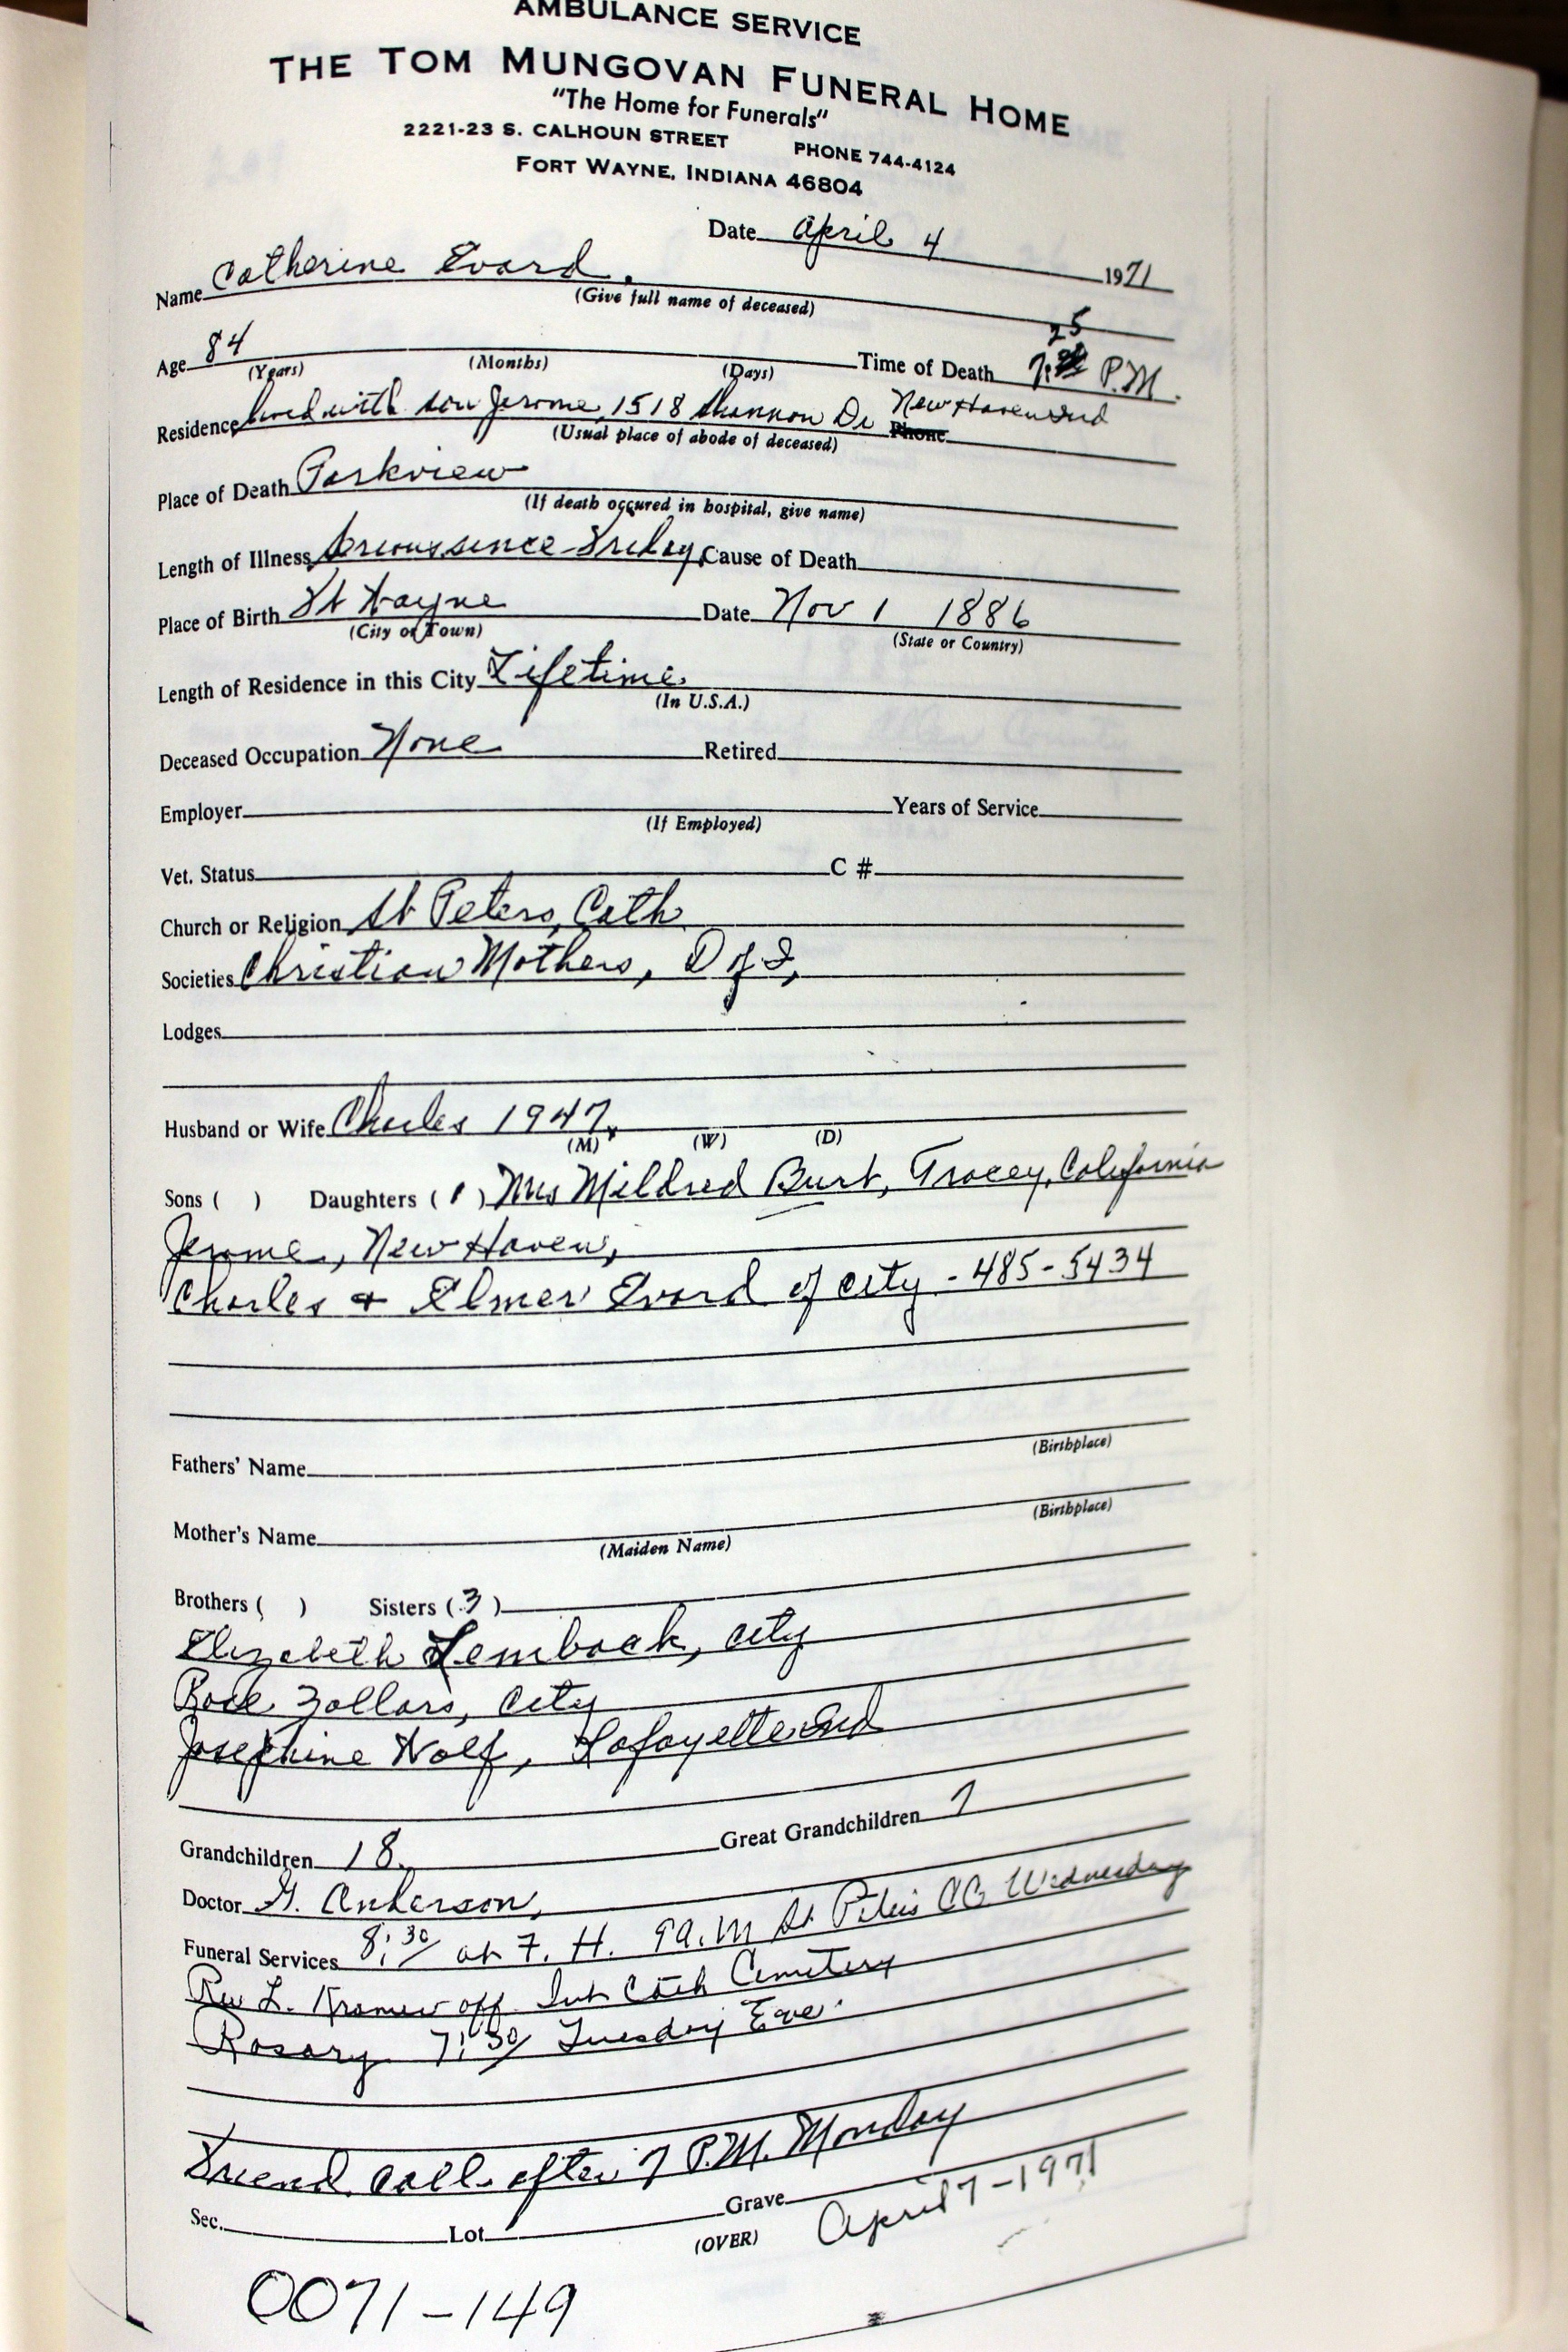 AMBULANCE SERVICE
THE TOM MUNGOVAN FUNERAL HOME
"The Home for Funerals"
2221-23 S. CALHOUN STREET PHONE 744-4124
FORT WAYNE, INDIANA 46804
Date April 4 1971
Name Catherine Evard.
(Give full name of deceased)
Age 84 Time of Death 7:25 P.M.
(Years) (Months) (Days)
Residence lived with son Jerome, 1518 Shannon Dr New Haven Ind Phone
(Usual place of abode of deceased)
Place of Death Parkview
(If death occured in hospital, give name)
Length of Illness Serious since Friday, Cause of Death
Place of Birth Ft Wayne Date Nov 1 1886
(City or Town) (State or Country)
Length of Residence in this City Lifetime.
(In U.S.A.)
Deceased Occupation None Retired
Employer Years of Service
(If Employed)
Vet. Status C #
Church or Religion St Peters, Cath
Societies Christian Mothers, D of I,
Lodges
Husband or Wife Charles 1947.
(M) (W) (D)
Sons ( ) Daughters (1) Mrs Mildred Burt, Tracey, California
Jerome, New Haven,
Charles + Elmer Evard of city - 485-5434
Fathers' Name (Birthplace)
Mother's Name (Birthplace)
(Maiden Name)
Brothers ( ) Sisters (3)
Elizabeth Lemback, city
Rose Zollars, City
Josephine Wolf, Lafayette Ind
Grandchildren 18. Great Grandchildren 7
Doctor G. Anderson,
Funeral Services 8:30 at F. H. 9 a.m St Peters CC Wednesday
Rev L. Kramer off. Int Cath Cemetery
Rosary 7:30 Tuesday Eve.
Friend call after 7 P.M. Monday
Sec. Lot Grave
(OVER) April 7-1971
0071-149